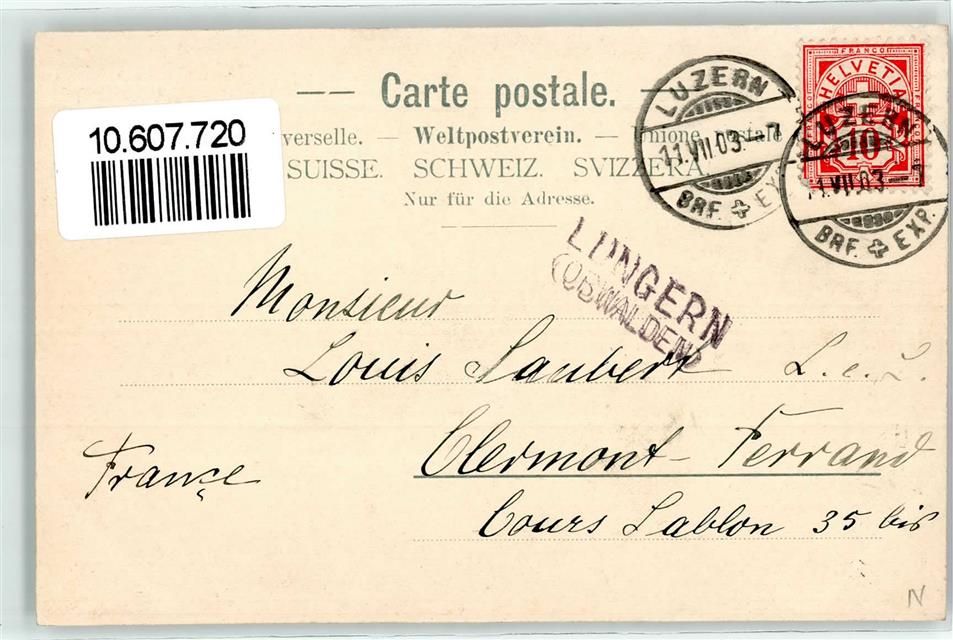 Carte postale.
verselle. — Weltpostverein. — Unione postale
SUISSE. SCHWEIZ. SVIZZERA.
Nur für die Adresse.
10.607.720
FRANCO
HELVETIA
10
LUZERN
11.VII.03.–7
BRF. EXP.
LUZERN
11.VII.03–7
BRF. EXP.
LUNGERN
(OBWALDEN)
Monsieur
Louis Saubert L. e. L.
Clermont-Ferrand
France
Cours Sablon 35 bis
N